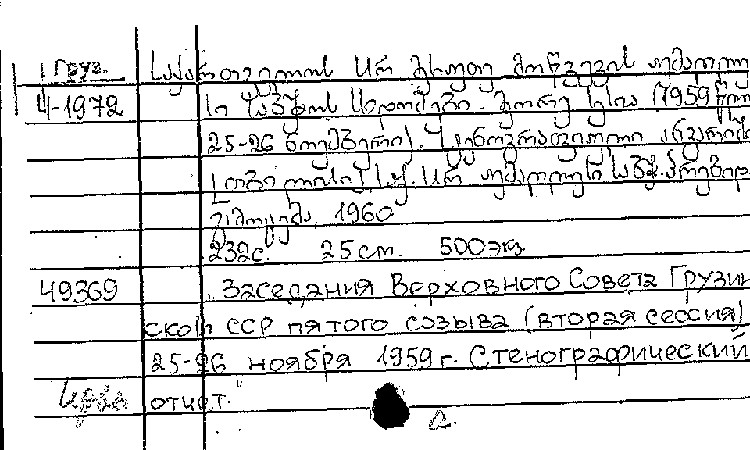 1 Груз. საქართველოს სსრ მეხუთე მოწვევის უმაღლე
4-1972 სი საბჭოს სხდომები. მეორე სესია (1959 წლის
25-26 ნოემბერი). სტენოგრაფიული ანგარიში
საქ. სსრ უმაღლესი საბჭ.
გამოცემა, 1960
232с. 25 см. 500 экз.
49369 Заседания Верховного Совета Грузин
ской ССР пятого созыва (вторая сессия)
25-26 ноября 1959 г. Стенографический
отчет.